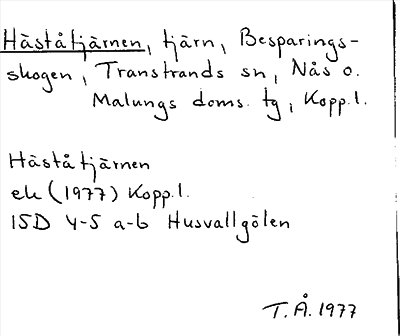 Håståtjärnen, tjärn, Besparings-
skogen, Transtrands sn, Nås o.
Malungs doms. tg, Kopp.l.
Håståtjärnen
ek (1977) Kopp.l.
15D 4-5 a-b Husvallgölen
T.Å. 1977